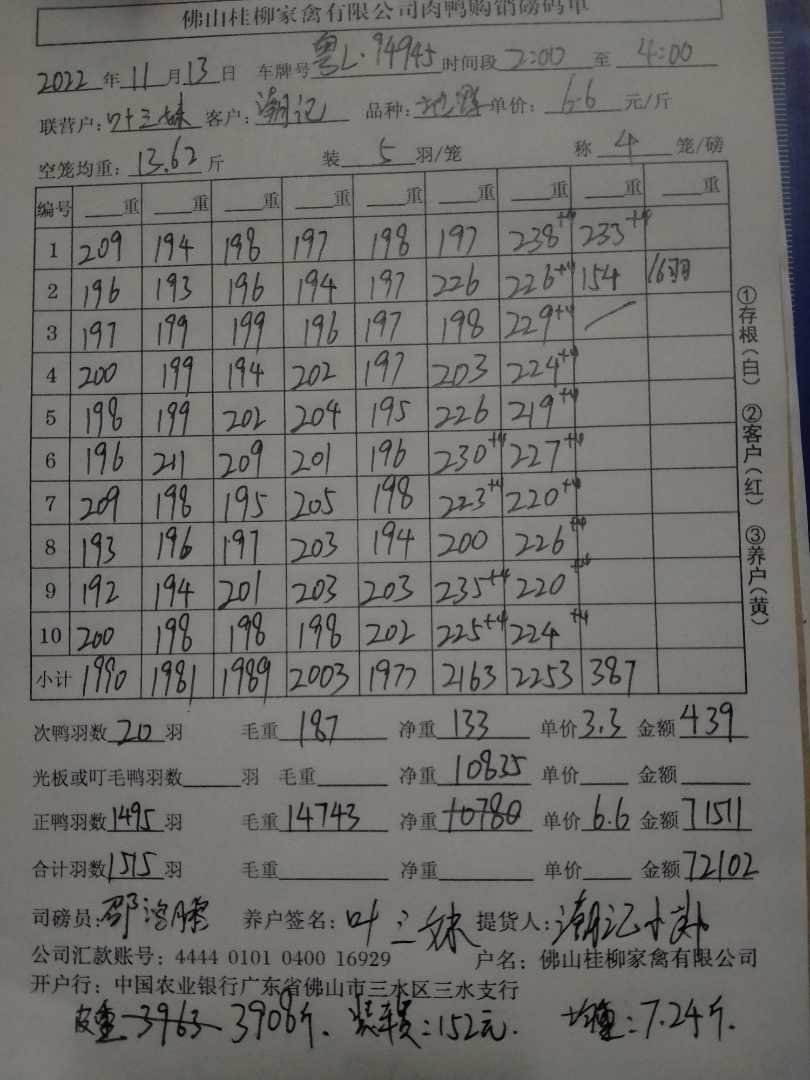 佛山桂柳家禽有限公司肉鸭购销磅码单
2022年11月13日 车牌号粤L·94945时间段2:00至4:00
联营户:叶三妹 客户:潮记 品种: 单价:6.6元/斤
空笼均重:13.62斤 装5羽/笼 称4笼/磅
编号 重 重 重 重 重 重 重 重 重
1 209 194 198 197 198 197 238+4 233+4
2 196 193 196 194 197 226 226+4 154 16羽
3 197 199 199 196 197 198 229+4 /
4 200 199 194 202 197 203 224+4
5 198 199 202 204 195 226 219+4
6 196 211 209 201 196 230+4 227+4
7 209 198 195 205 198 223+4 220+4
8 193 196 197 203 194 200 226+4
9 192 194 201 203 203 235+4 220+4
10 200 198 198 198 202 225+4 224+4
小计 1990 1981 1989 2003 1977 2163 2253 387
次鸭羽数20羽 毛重187 净重133 单价3.3 金额439
光板或叮毛鸭羽数 羽 毛重 净重10835 单价 金额
正鸭羽数1495羽 毛重14743 净重10780 单价6.6 金额71511
合计羽数1515羽 毛重 净重 单价 金额72102
司磅员: 养户签名:叶三妹 提货人:潮记
公司汇款账号:4444 0101 0400 16929 户名:佛山桂柳家禽有限公司
开户行:中国农业银行广东省佛山市三水区三水支行
皮重3963 3908斤. 装车费:152元. 均重:7.24斤.
①存根(白) ②客户(红) ③养户(黄)